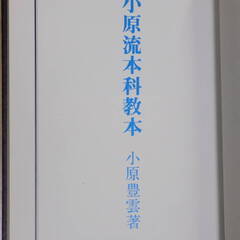 小原流本科教本
小原豊雲著